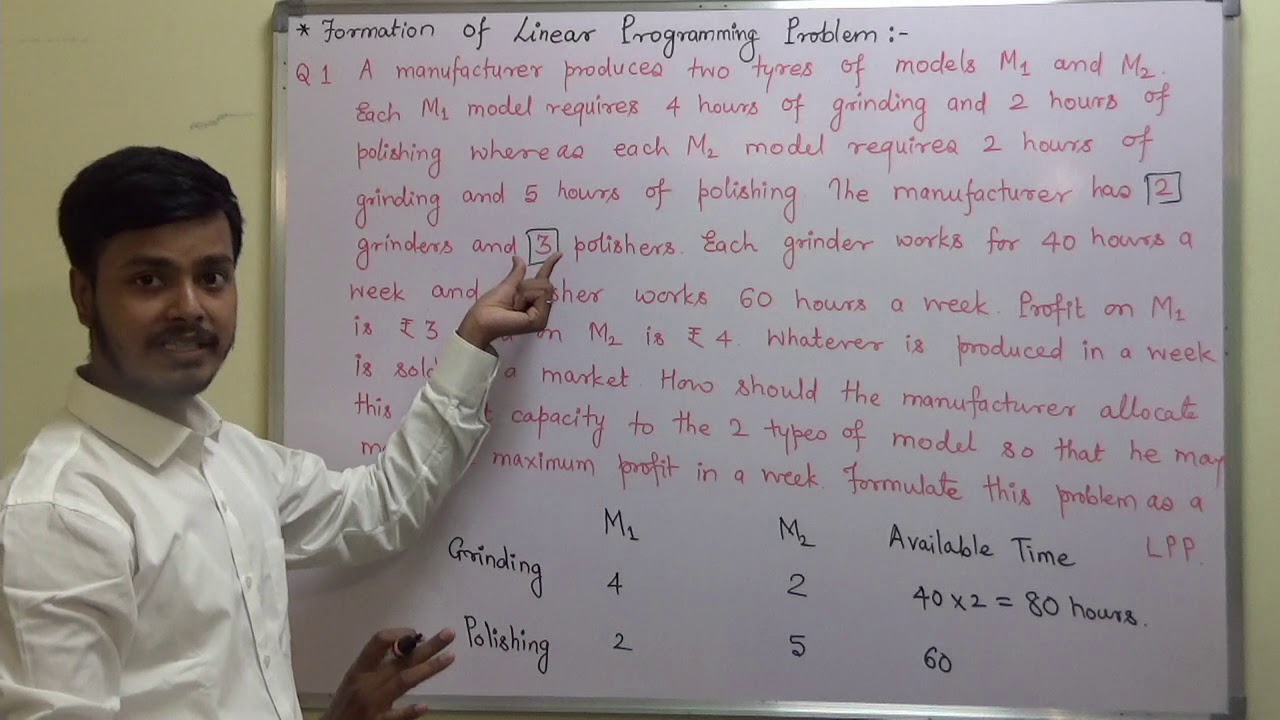 * Formation of Linear Programming Problem :-
Q 1 A manufacturer produces two tyres of models M₁ and M₂.
Each M₁ model requires 4 hours of grinding and 2 hours of
polishing whereas each M₂ model requires 2 hours of
grinding and 5 hours of polishing The manufacturer has 2
grinders and 3 polishers. Each grinder works for 40 hours a
week and works 60 hours a week. Profit on M₁
is ₹ 3 on M₂ is ₹ 4. Whatever is produced in a week
is sold a market. How should the manufacturer allocate
this capacity to the 2 types of model so that he may
maximum profit in a week. Formulate this problem as a
LPP.
M₁ M₂ Available Time
Grinding 4 2 40 × 2 = 80 hours.
Polishing 2 5 60